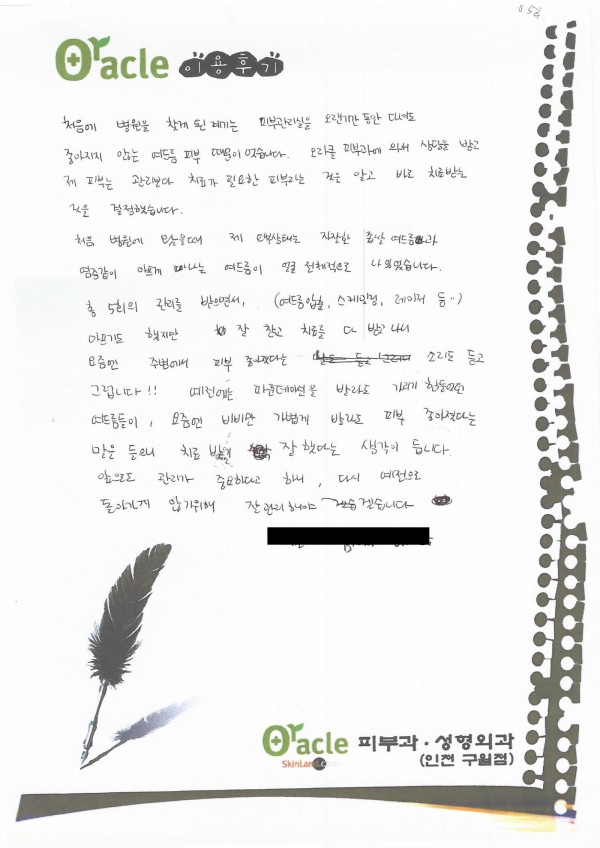 Oracle 이용후기
처음에 병원을 찾게 된 계기는 피부관리실을 오랜기간 동안 다녀도
좋아지지 않는 여드름 피부 때문이었습니다. 오라클 피부과에 와서 상담을 받고
제 피부는 관리보다 치료가 필요한 피부라는 것을 알고 바로 치료받는
것을 결정했습니다.
처음 병원에 왔을때 제 피부상태는 자잘한 좁쌀 여드름과
염증같이 아프게 나는 여드름이 얼굴 전체적으로 나 있었습니다.
총 5회의 관리를 받으면서, (여드름압출, 스케일링, 레이저 등..)
아프기도 했지만 잘 참고 치료를 다 받고 나서
요즘엔 주변에서 피부 좋아졌다는 소리도 듣고
그럽니다!! 예전에는 파운데이션을 발라도 가리기 힘들었던
여드름들이, 요즘엔 비비만 가볍게 발라도 피부 좋아졌다는
말을 들으니 치료 받길 잘 했다는 생각이 듭니다.
앞으로도 관리가 중요하다고 하니, 다시 예전으로
돌아가게 않기위해 잘 관리해야 겠습니다
Oracle 피부과·성형외과
SkinLand.com (인천 구월점)